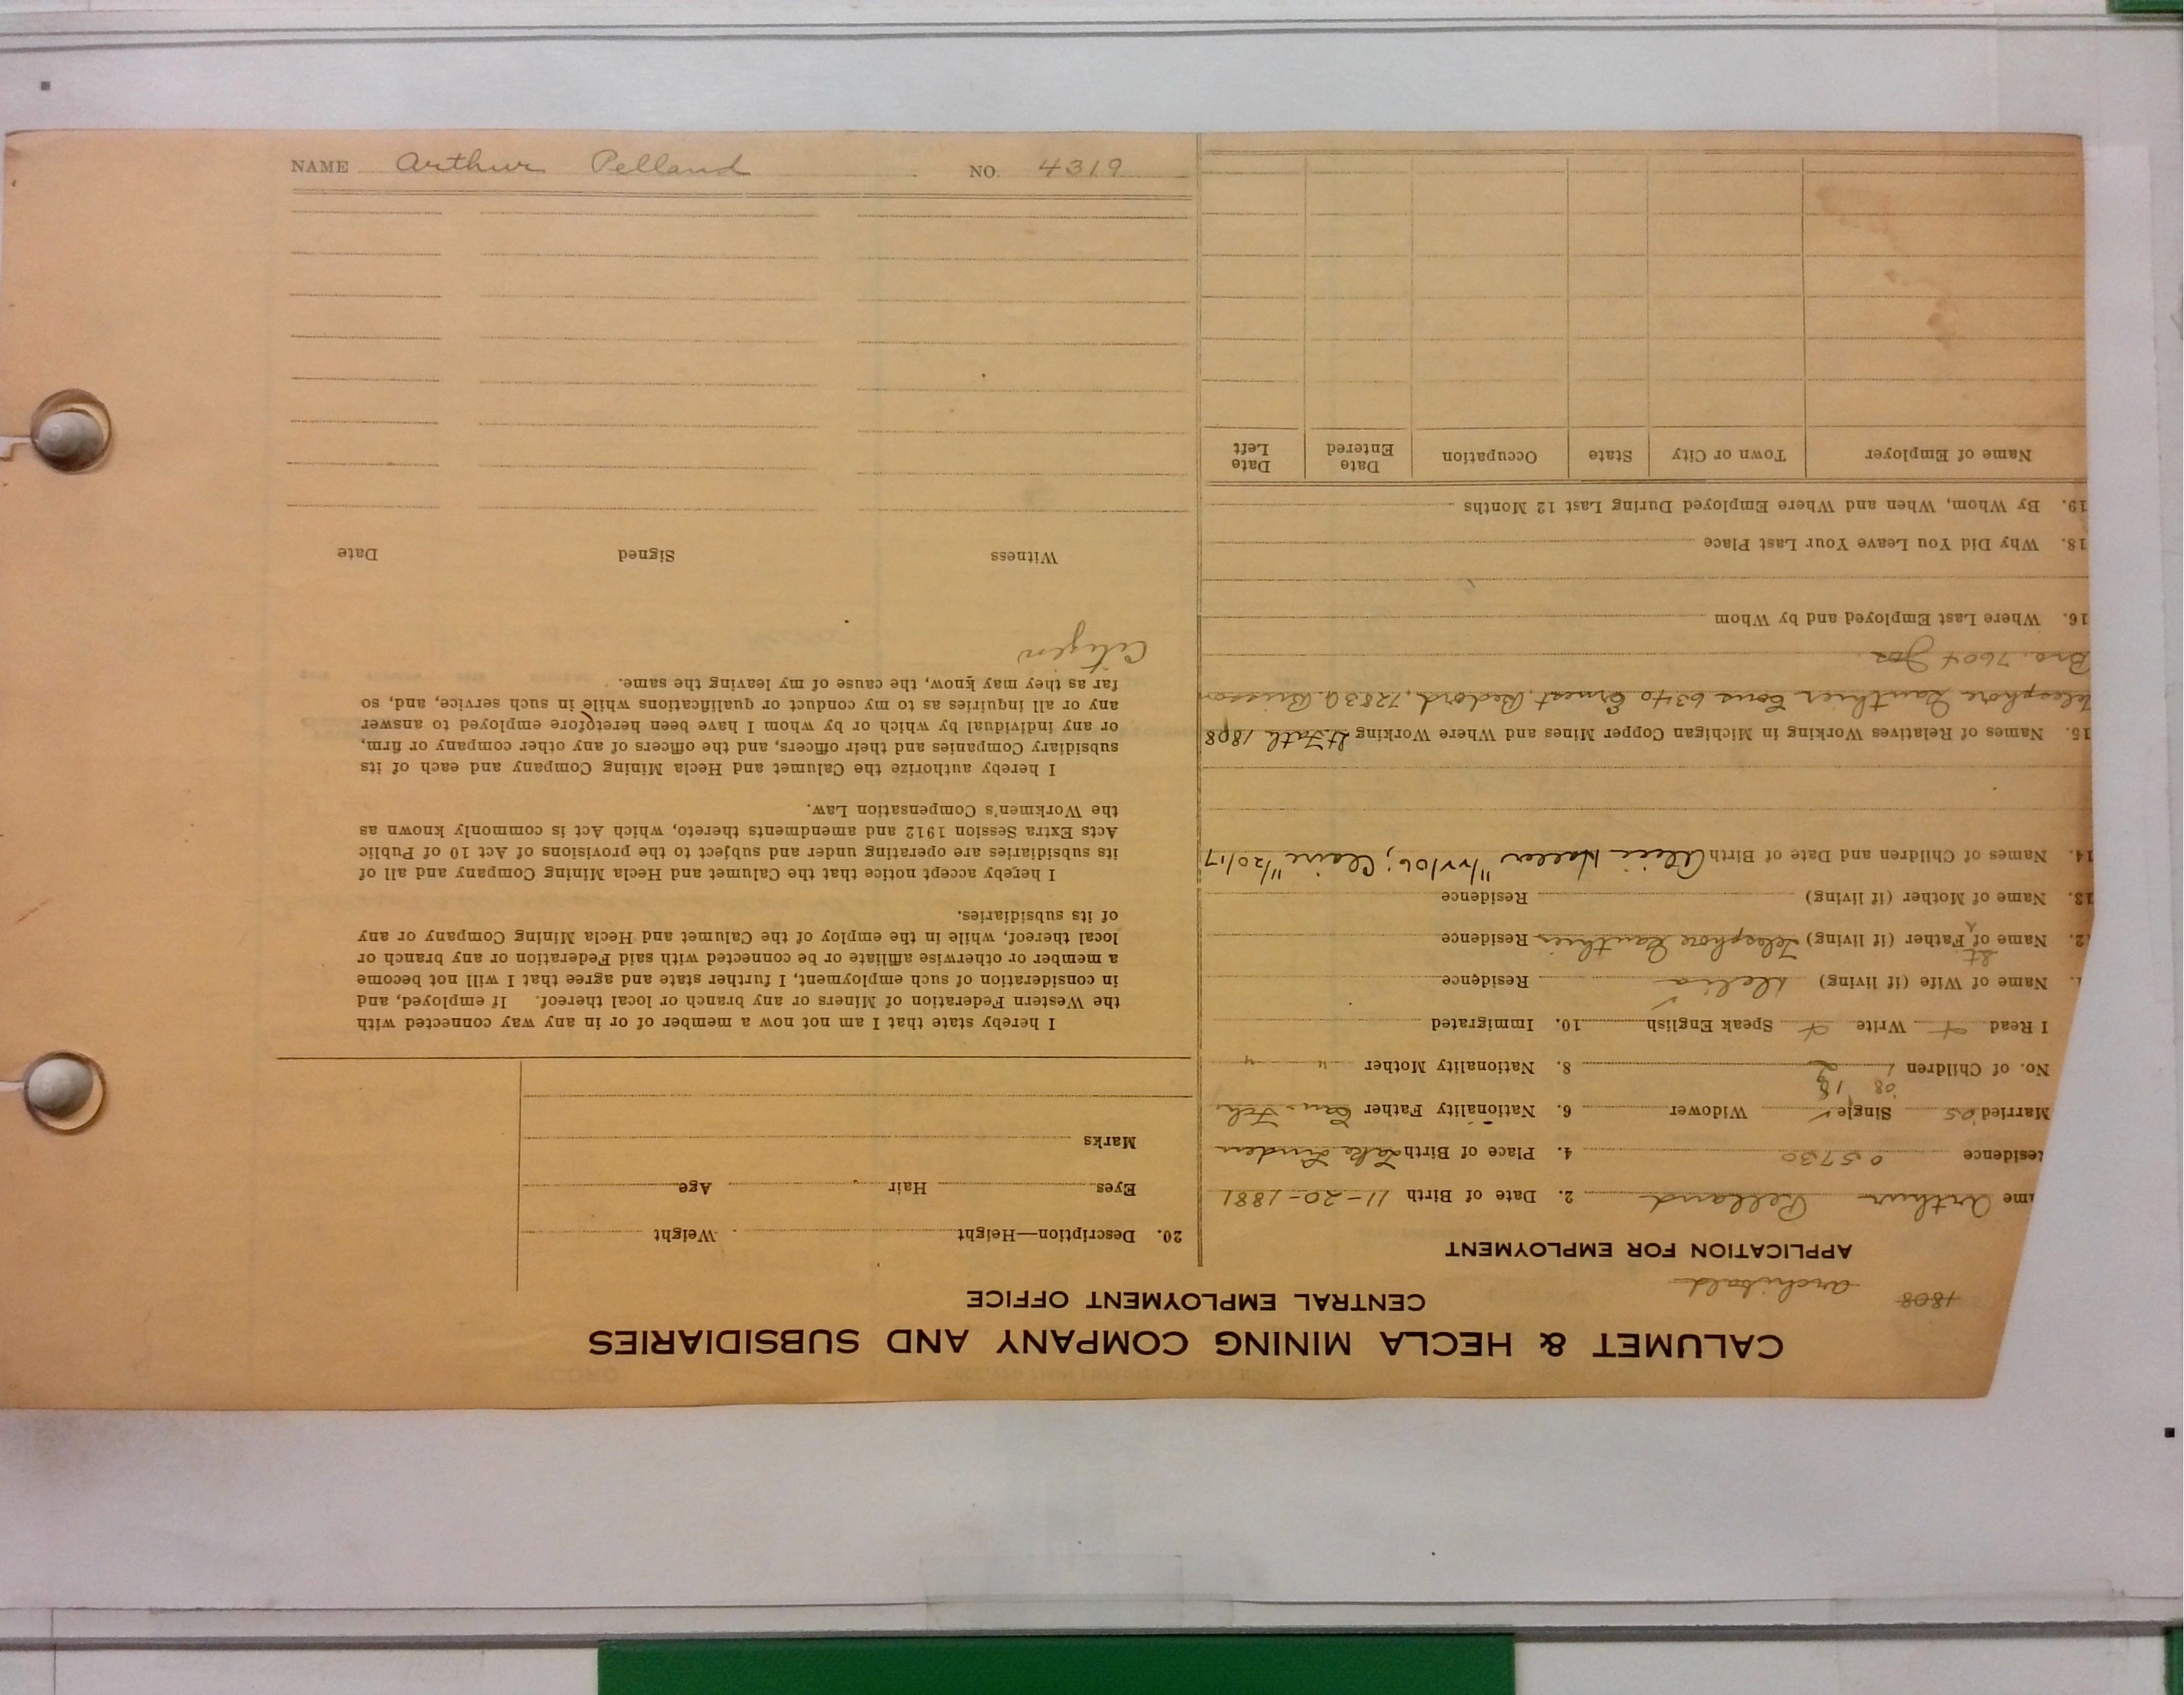 NAME Arthur Pelland NO. 4319
CALUMET & HECLA MINING COMPANY AND SUBSIDIARIES
CENTRAL EMPLOYMENT OFFICE
1808
Archibald
APPLICATION FOR EMPLOYMENT
ame Arthur Pelland 2. Date of Birth 11-20-1881
esidence 05730 4. Place of Birth Lake Linden
Married 05 Single Widower 6. Nationality Father Can. Fch
08 18
No. of Children 2 8. Nationality Mother " "
I Read + Write + Speak English 10. Immigrated
Name of Wife (if living) Delia Residence
St
2. Name of Father (if living) Telesphore Lanthier Residence
13. Name of Mother (if living) Residence
14. Names of Children and Date of Birth Alice 11/22/06; Claire 11/20/17
15. Names of Relatives Working in Michigan Copper Mines and Where Working St. Fath 1808
Telesphore Lanthier Cous 6340 Ernest Bedord, 7283 A. Brisson
Bro. 7604 Jos
16. Where Last Employed and by Whom
18. Why Did You Leave Your Last Place
19. By Whom, When and Where Employed During Last 12 Months
Name of Employer Town or City State Occupation Date Entered Date Left
20. Description—Height Weight
Eyes Hair Age
Marks
I hereby state that I am not now a member of or in any way connected with
the Western Federation of Miners or any branch or local thereof. If employed, and
in consideration of such employment, I further state and agree that I will not become
a member or otherwise affiliate or be connected with said Federation or any branch or
local thereof, while in the employ of the Calumet and Hecla Mining Company or any
of its subsidiaries.
I hereby accept notice that the Calumet and Hecla Mining Company and all of
its subsidiaries are operating under and subject to the provisions of Act 10 of Public
Acts Extra Session 1912 and amendments thereto, which Act is commonly known as
the Workmen's Compensation Law.
I hereby authorize the Calumet and Hecla Mining Company and each of its
subsidiary Companies and their officers, and the officers of any other company or firm,
or any individual by which or by whom I have been heretofore employed to answer
any or all inquiries as to my conduct or qualifications while in such service, and, so
far as they may know, the cause of my leaving the same.
Citizen
Witness Signed Date